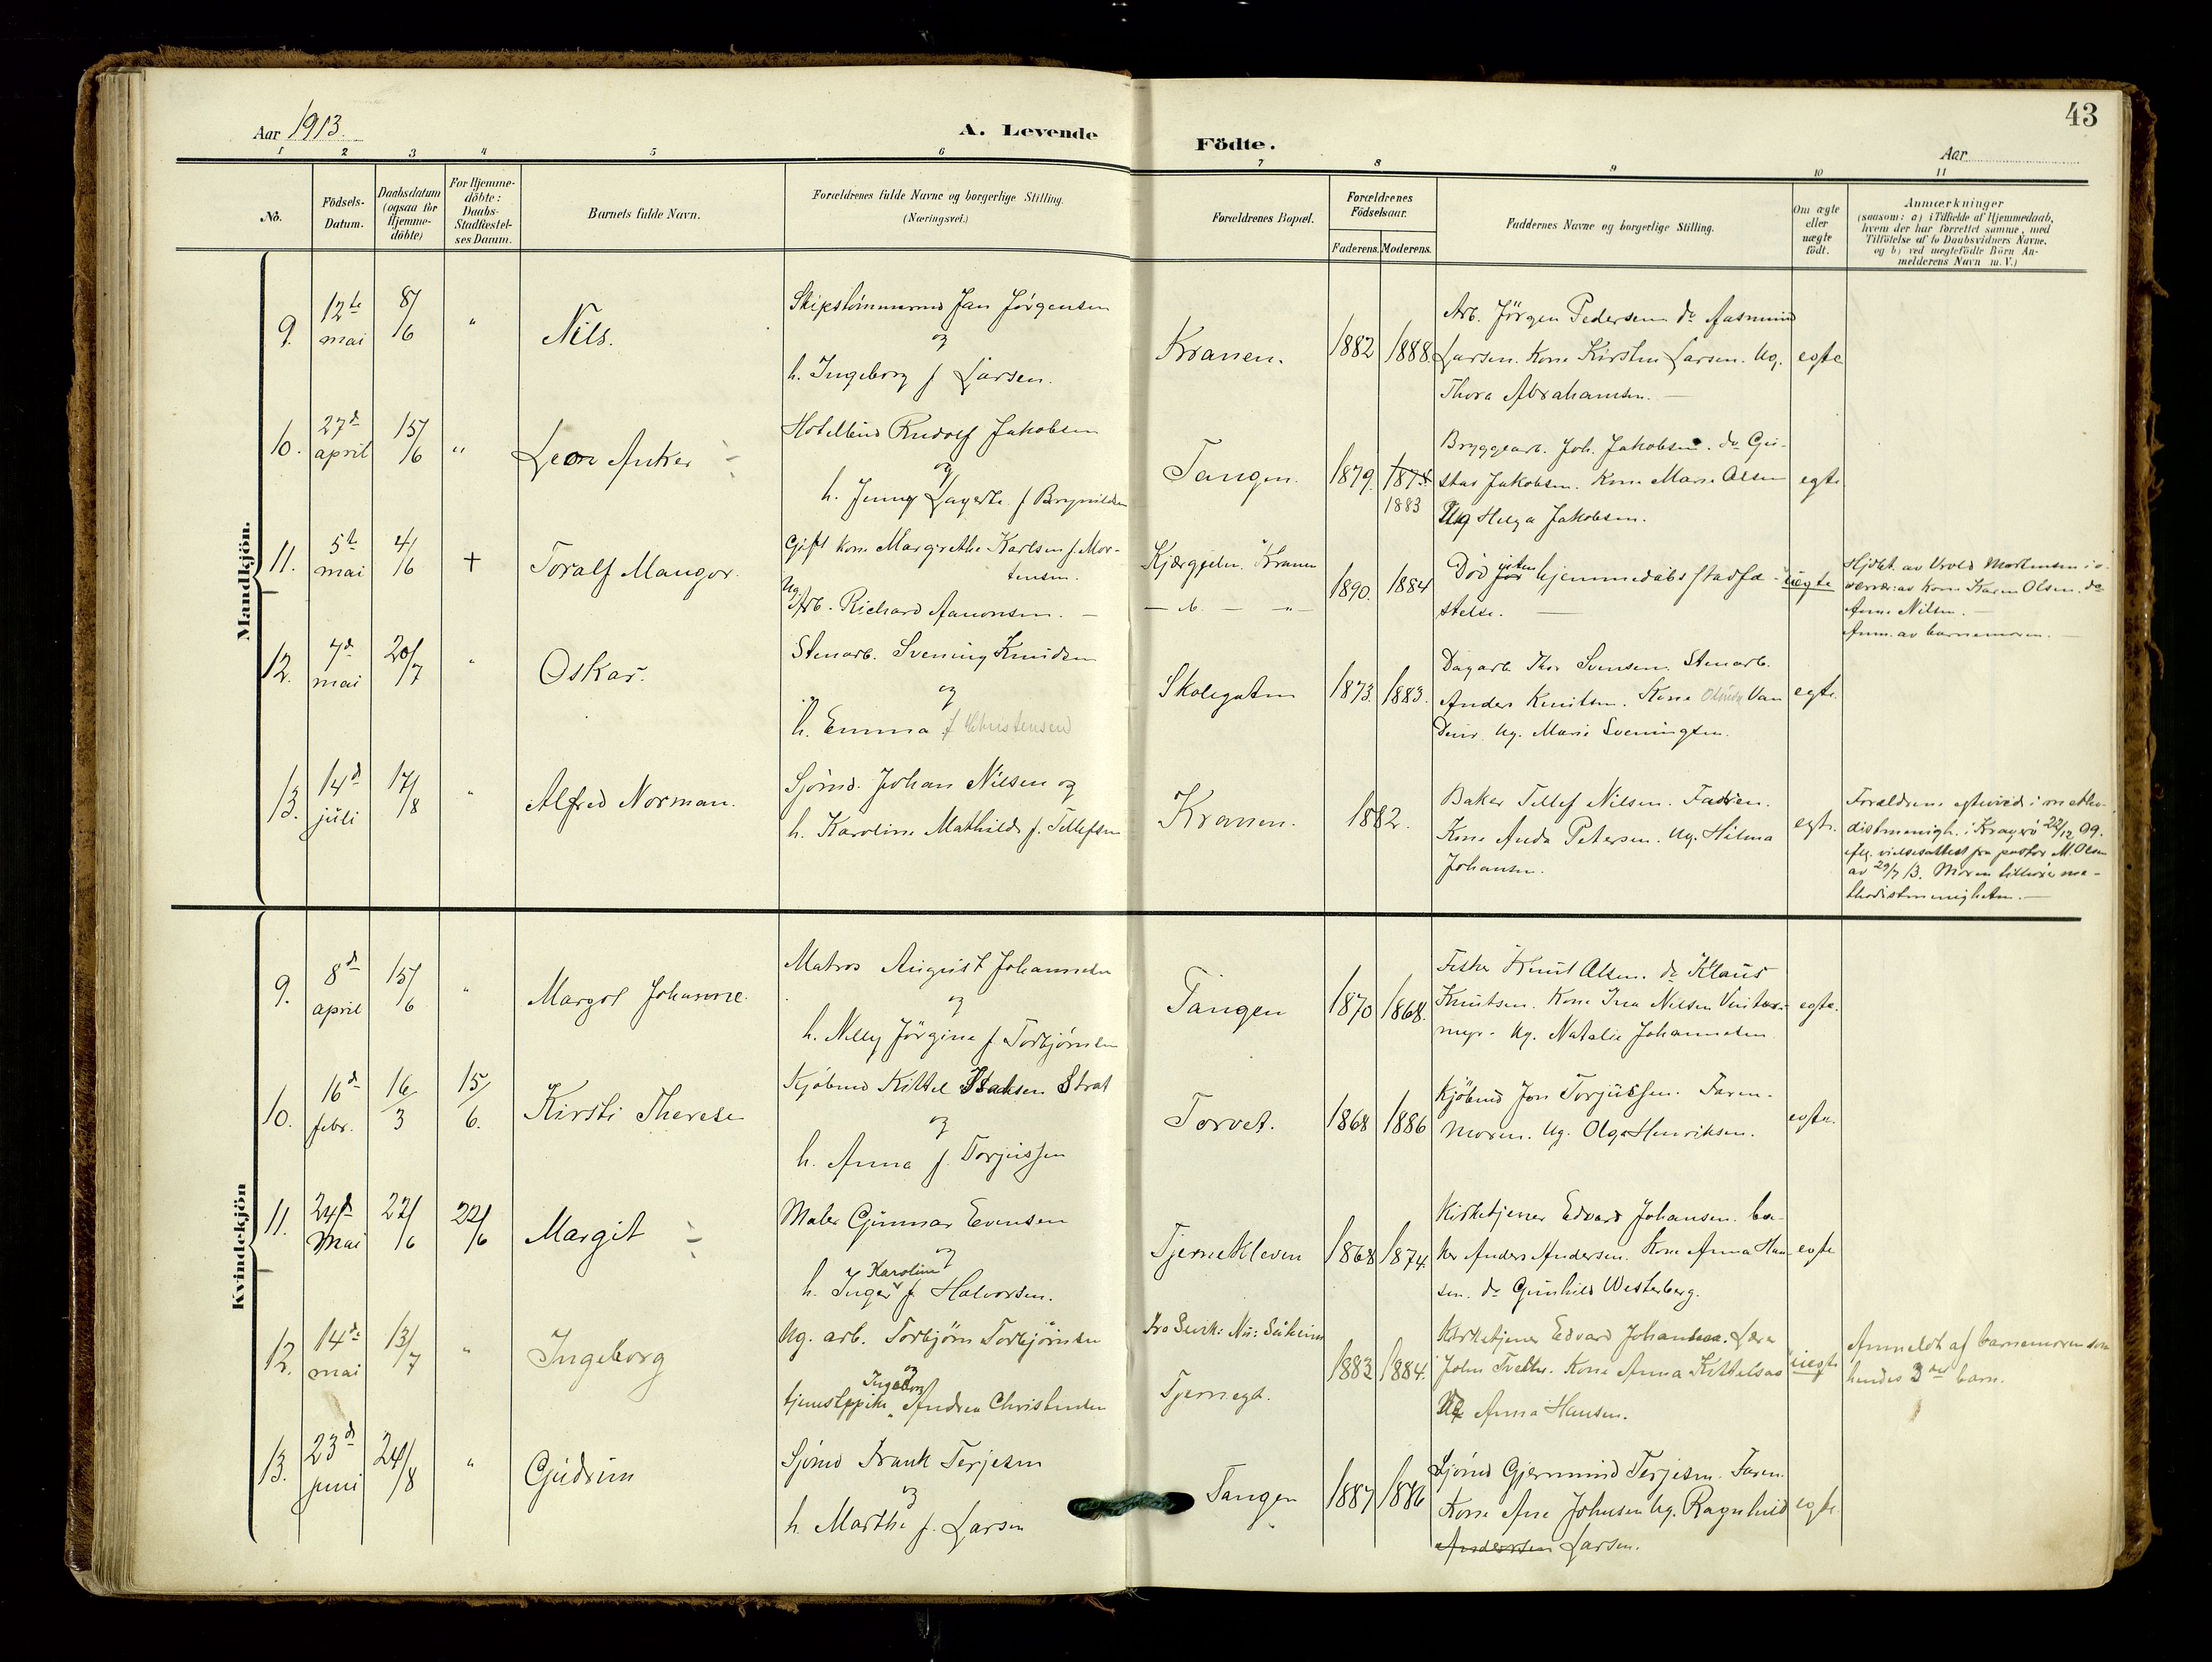 43
Aar 1913.
A. Levende Födte.
Aar
1 2 3 4 5 6 7 8 9 10 11
No.
Födsels-Datum.
Daabsdatum (ogsaa for Hjemme-döbte)
For Hjemme-döbte: Daabs-Stadfæstel-ses Datum.
Barnets fulde Navn.
Forældrenes fulde Navne og borgerlige Stilling.
(Næringsvei.)
Forældrenes Bopæl.
Forældrenes Födselsaar.
Faderens. Moderens.
Faddernes Navne og borgerlige Stilling.
Om ægte eller uægte födt.
Anmærkninger
(saasom: a) i Tilfælde af Hjemmedaab,
hvem der har forrettet samme, med
Tilföielse af to Daabsvidners Navne,
og b) ved uegtefödte Börn An-
melderens Navn m. V.)
Mandkjön.
9. 12te mai 8/6 " Nils.
Skipstömmermd Jan Jörgensen
og
h. Ingeborg f Larsen.
Kranen. 1882 1888
Arb. Jörgen Pedersen do Aasmund
Larsen. Kone Kirsten Larsen. Ug.
Thora Abrahamsen.
egte
10. 27d april 15/6 " Leon Anker
Rudolf Jakobsen
og
h. Jenny Lagertha f Brynildsen
Tangen. 1879. 1883
Bryggearb. Joh. Jakobsen. do Gu-
stav Jakobsen. Kone Marie Olsen
Ug Helga Jakobsen.
egte
11. 5te mai 4/6 + Toralf Mangor.
Gift kone Margrethe Karlsen f. Mor-
tensen.
Ug. Arb. Richard Aanonsen.
Kranen
1890. 1884
Död uten hjemmedåbs stadfæ-
stelse.
uegte
Hjdbt. av Mortensen i o-
vervær. av Kone Karen Olsen. do
Anne Nilsen.
Anm. av barnemoren.
12. 7d mai 20/7 " Oskar.
Stenarb. Svening Knudsen
og
h. Emma f Christensen
Skolegaten 1873. 1883.
Dagarb. Thor Svensen. Stenarb.
Anders Knutsen. Kone Van
Ug. Marie Sveningsen.
egte.
13. 14d juli 17/8 " Alfred Norman.
Sjömd. Johan Nilsen og
h. Karoline Mathilde f. Tellefsen
Kranen. 1882.
Baker Tellef Nilsen. Faren.
Kone Anda Petersen. Ug. Hilma
Johansen.
egte.
Forældrene egteviede i metho-
distmenigh. i Kragerö 22/12 09.
iflg. vielsesattest fra pastor M. Olsen
av 29/7 13. Moren tilhörer me-
thodistmenigheten.
Kvindekjön
9. 8d april 15/6 " Margot Johanne.
Matros August Johannesen
og
h. Nelly Jörgine f Torbjörnsen
Tangen 1870 1868.
Fisker Knut Olsen. do Klaus
Knutsen. Kone Ina Nilsen Vinter-
myr. Ug. Natalie Johannesen
egte.
10. 16d febr. 16/3 15/6. Kirsti Therese
Kjöbmd Kittel Isaksen Strat
og
h. Anna f. Torjussen
Torvet. 1868 1886
Kjöbmd Jon Torjussen. Faren.
Moren. Ug. Olga Henriksen.
egte.
11. 24d Mai 22/6 22/6 Margit
Maler Gunnar Evensen
og
Karoline
h. Inger f. Halvorsen.
Tjernekleven 1868 1874.
Kirketjener Edvard Johansen. ba-
ker Anders Andersen. Kone Anna Han-
sen. do Gunhild Westerberg.
egte
12. 14de mai 13/7 " Ingeborg
Ug. arb. Torbjörn Torbjörnsen
og
Ingeborg
tjenestepike Andrea Christensen
Nu: Saaheim
Tjernegt.
1883 1884.
Kirketjener Edvard Johansen.
John Kone Anna Kittelsaas
Ug Anna Hansen.
uegte
Anmeldt af barnemoren som
hendes 3die barn.
13. 23d juni 24/8 " Gudrun
Sjömd Frank Terjesen
og
h. Marthe f. Larsen
Tangen 1887 1886
Sjömd Gjermund Terjesen. Faren.
Kone Ane Johnsen Ug. Ragnhild
Andersen Larsen.
egte.